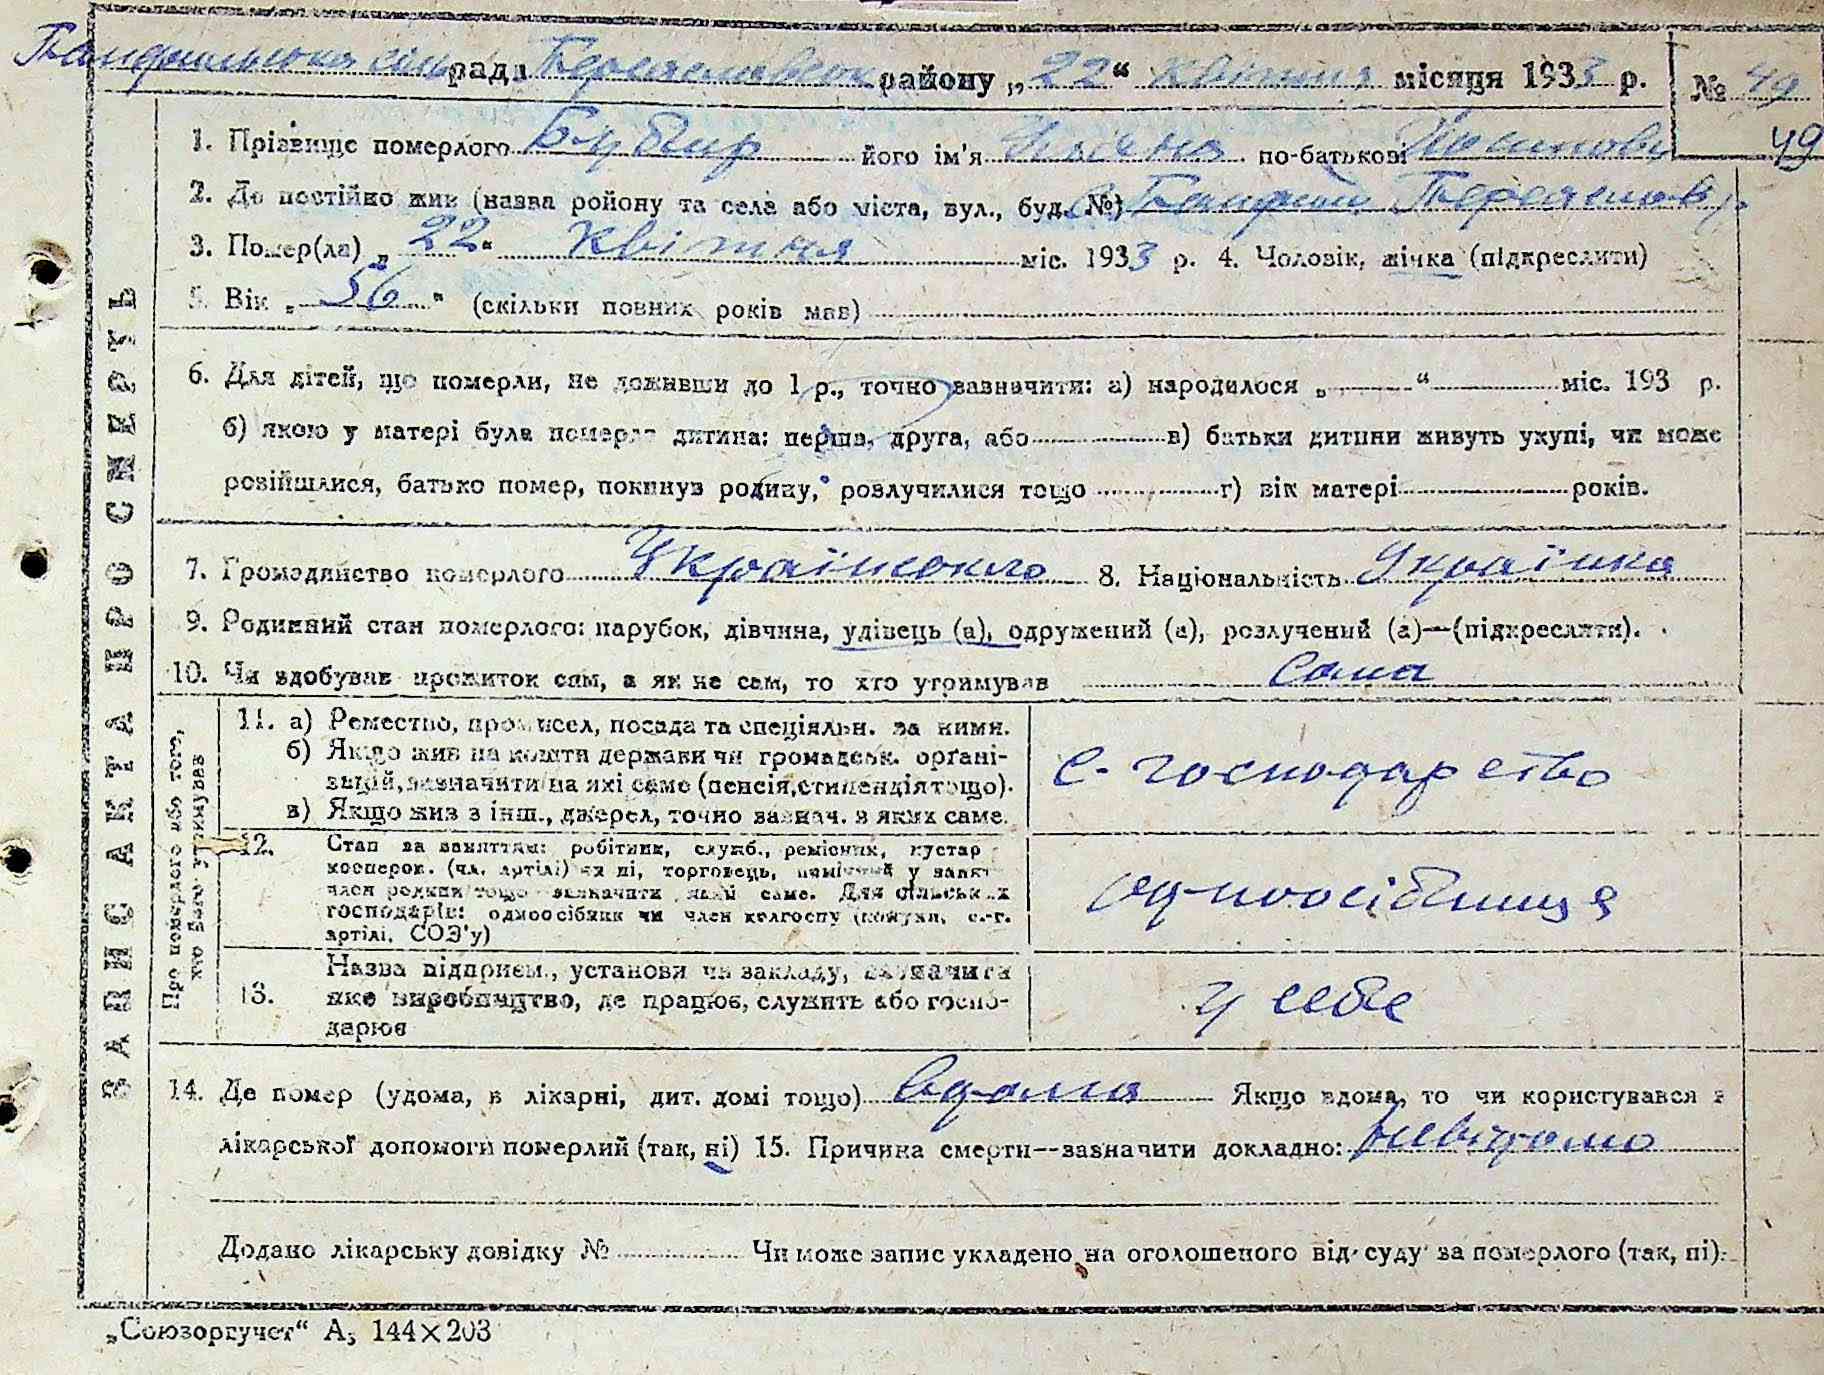 рада Переяславськ району „22“ квітня місяця 1933 р. № 49
49
1. Прізвище померлого Бубир його ім'я Уляна по-батькові
2. Де постійно жив (назва району та села або міста, вул., буд. №) Переяслав р.
3. Помер(ла) „22“ квітня міс. 1933 р. 4. Чоловік, жінка (підкреслити)
5. Вік „56“ (скільки повних років мав)
6. Для дітей, що померли, не доживши до 1 р., точно зазначити: а) народилося „ “ міс. 193 р.
б) якою у матері була померла дитина: перша, друга, або в) батьки дитини живуть укупі, чи може
розійшлися, батько помер, покинув родину, розлучилися тощо г) вік матері років.
7. Громадянство померлого Українського 8. Національність Українка
9. Родинний стан померлого: парубок, дівчина, удівець (а), одружений (а), розлучений (а)—(підкреслити).
10. Чи здобував прожиток сам, а як не сам, то хто утримував сама
ЗАПИС АКТА ПРО СМЕРТЬ
Про померлого або того, хто його утримував
11. а) Ремество, промисел, посада та спеціяльн. за ними.
б) Якщо жив на кошти держави чи громадськ. органі-
зацій, зазначити на які саме (пенсія, стипендія тощо).
в) Якщо жив з інш., джерел, точно зазнач. з яких саме.
с-господарство
12. Стан за заняттям: робітник, служб., ремісник, кустар
коопером. (чл. артілі) чи ні, торговець,
член родини тощо зазначити який саме. Для сільських
господарів: одноосібник чи член колгоспу (комуни, с.-г.
артілі, СОЗ'у)
одноосібниця
13. Назва підприєм., установи чи закладу, зазначити
яке виробництво, де працює, служить або госпо-
дарює
у себе
14. Де помер (удома, в лікарні, дит. домі тощо) вдома Якщо вдома, то чи користувався з
лікарської допомоги померлий (так, ні) 15. Причина смерти—зазначити докладно: невідомо
Додано лікарську довідку № Чи може запис укладено на оголошеного від суду за померлого (так, ні).
„Союзоргучет“ А5 144×203